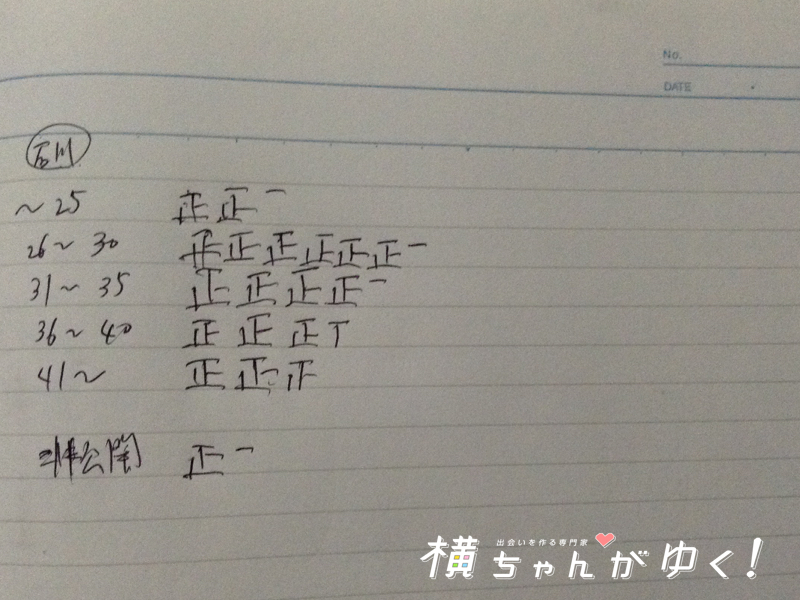 No.
DATE
石川
~25 正正一
26~30 正正正正正正一
31~35 正正正正一
36~40 正正正丅
41~ 正正正
非公開 正一
出会いを作る専門家
横ちゃんがゆく!